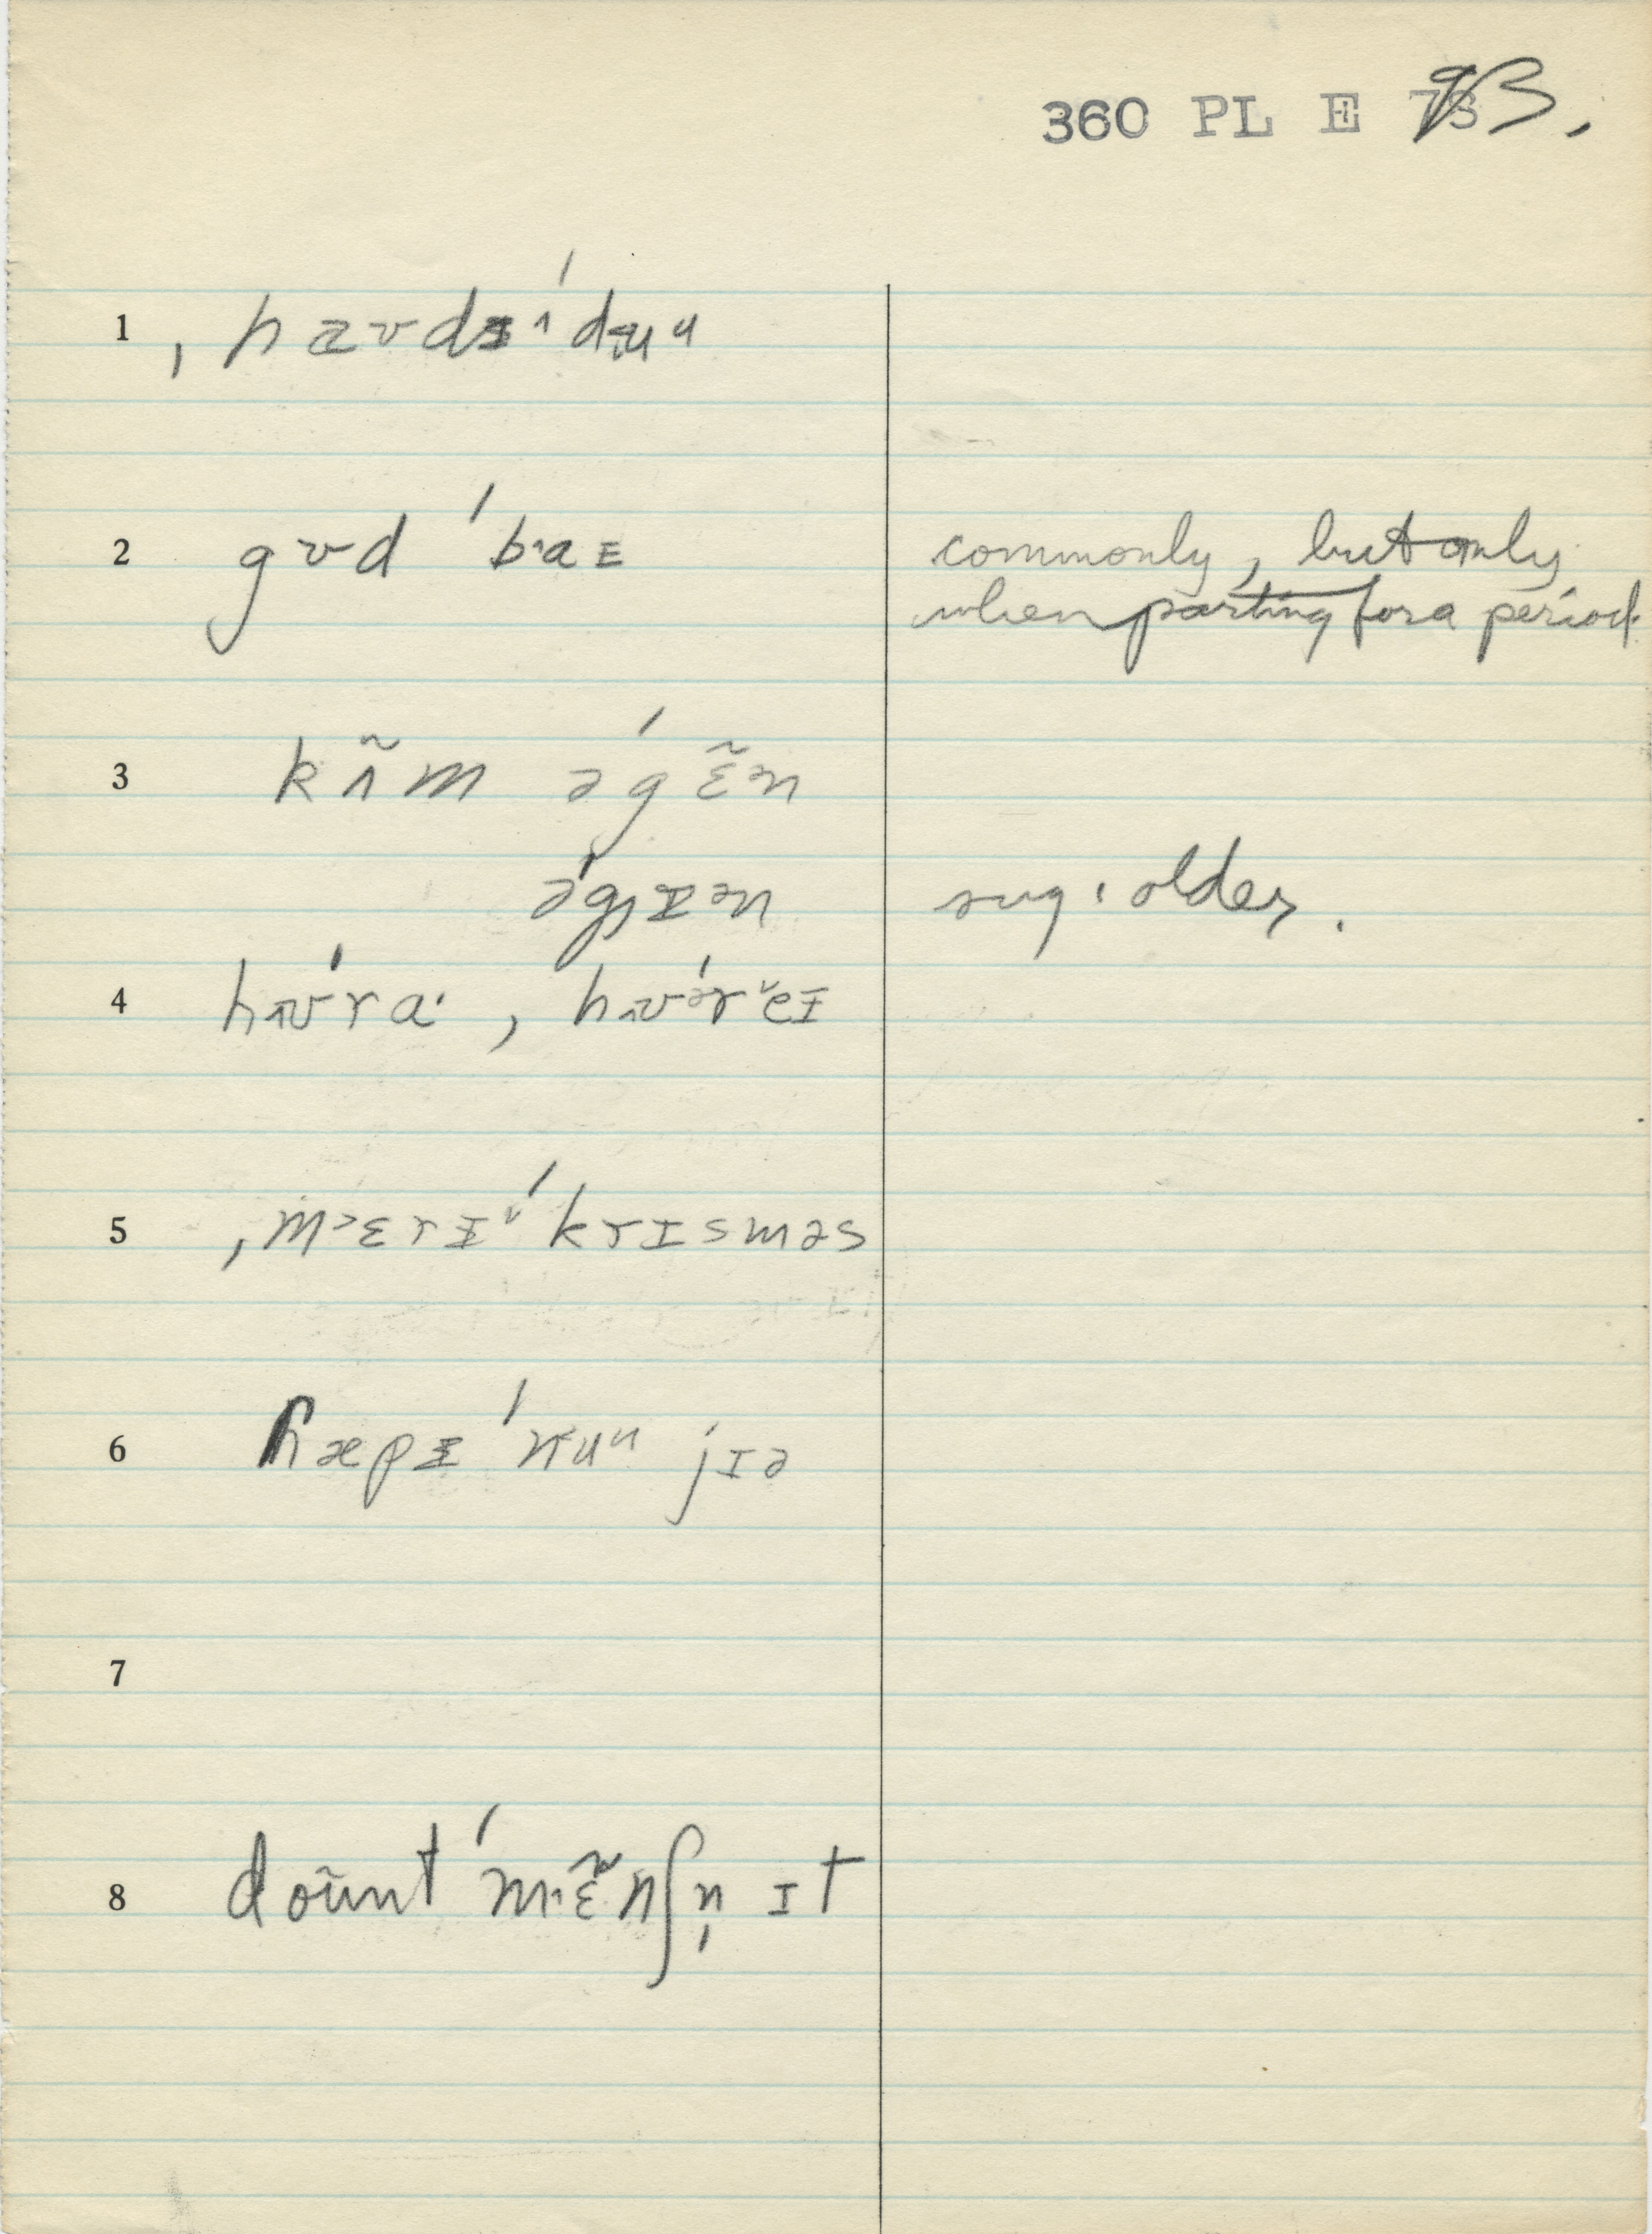 360 PL E 73.
1 ˌhaʊdɪˈduᵘ
2 gʊd ˈbˑaɛ commonly, but only
when parting for a period.
3 kʌ̃m əˈgɛ̃ən
əˈgɪən sug: older.
4 hʊˈraˑ, hʊˈreɪ
5 ˌmɛrɪˈkrɪsməs
6 hæpɪ ˈnuᵘ jɪə
7
8 doũnt ˈmɛ̃nʃn̩ ɪt